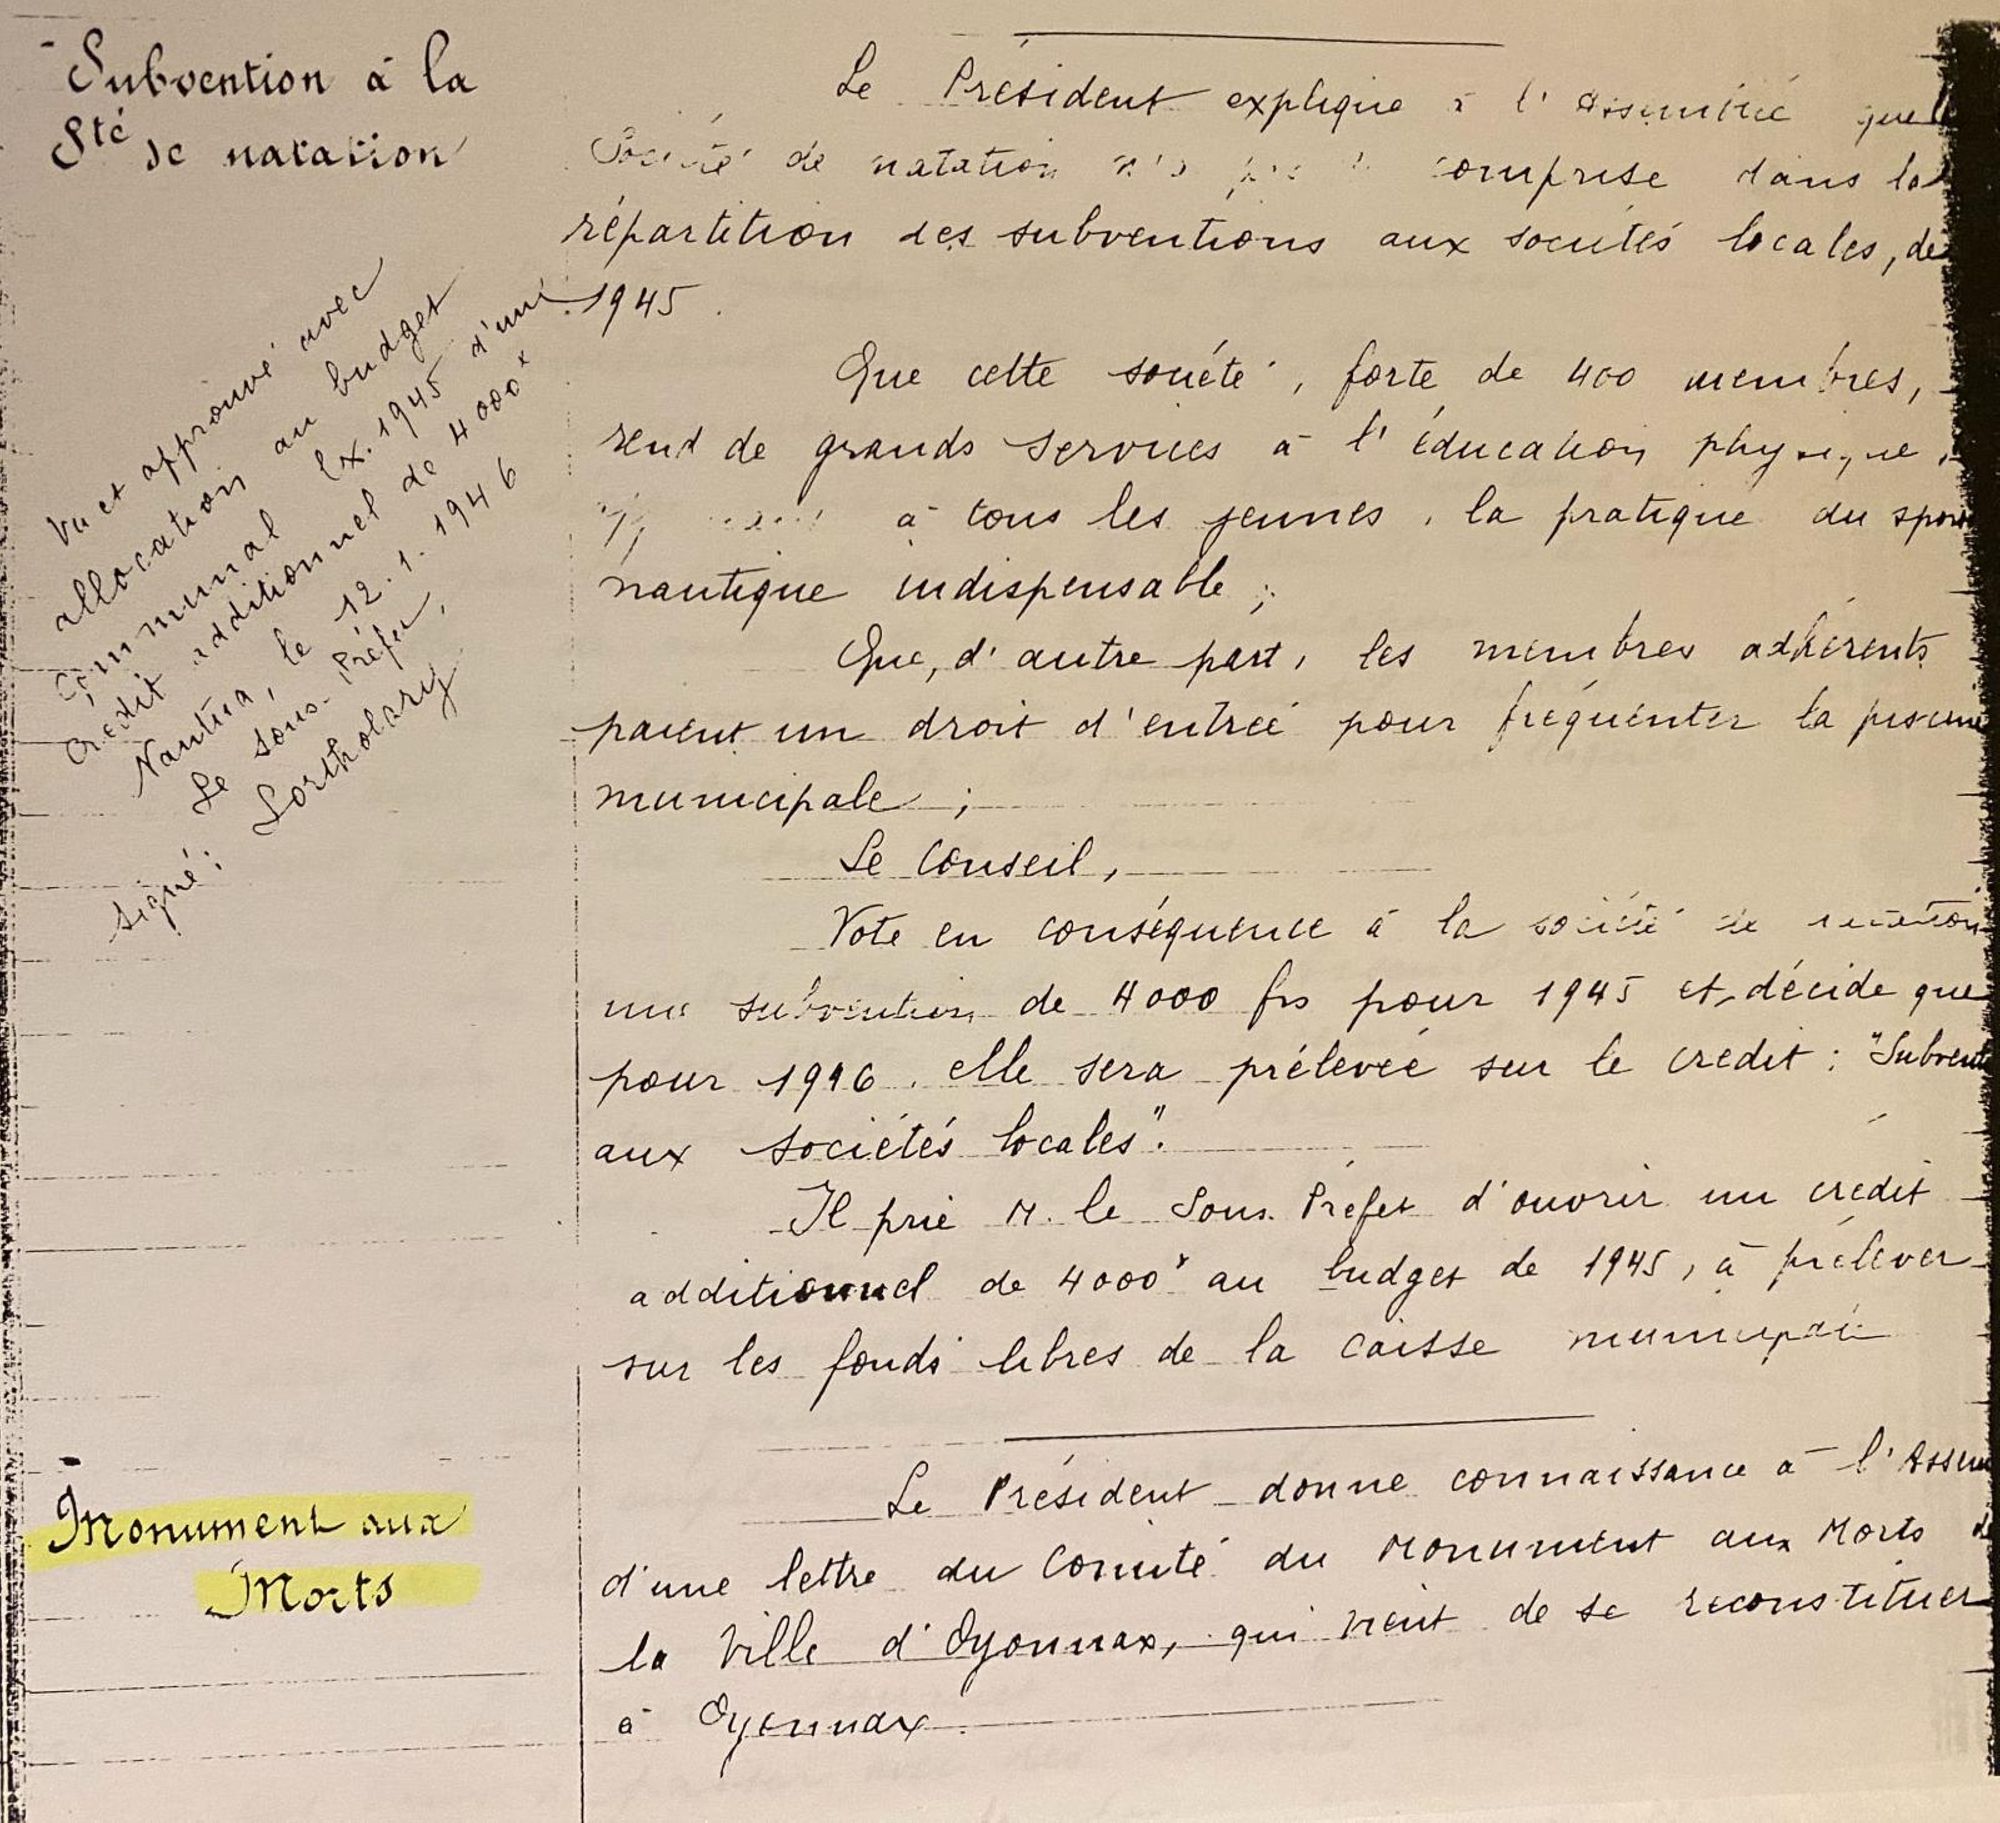 Subvention à la
Sté de natation
Vu et approuvé avec
allocation au budget
communal ex. 1945 d'un
crédit additionnel de 4000ᶠ
Nantua, le 12.1.1946
Le Sous-Préfet,
Signé : Lortholary
Le Président explique à l'Assemblée que
Société de natation comprise dans la
répartition des subventions aux sociétés locales, de
1945.
Que cette société, forte de 400 membres,
rend de grands services à l'éducation physique,
à tous les jeunes, la pratique du sport
nautique indispensable ;
Que, d'autre part, les membres adhérents
paient un droit d'entrée pour fréquenter la piscine
municipale ;
Le Conseil,
Vote en conséquence à la société de natation
une subvention de 4000 frs pour 1945 et, décide que
pour 1946, elle sera prélevée sur le crédit : "Subvent
aux sociétés locales".
Il prie M. le Sous-Préfet d'ouvrir un crédit
additionnel de 4000ᶠ au budget de 1945, à prélever
sur les fonds libres de la caisse municipale
Monument aux
Morts
Le Président donne connaissance à l'Assem
d'une lettre du Comité du Monument aux Morts de
la Ville d'Oyonnax, qui vient de se reconstituer
à Oyonnax.